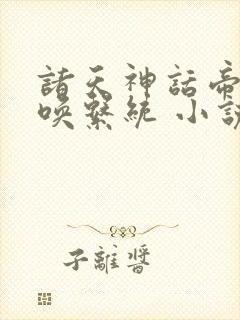 諸天神話帝
喚繫統 小說
子離醬